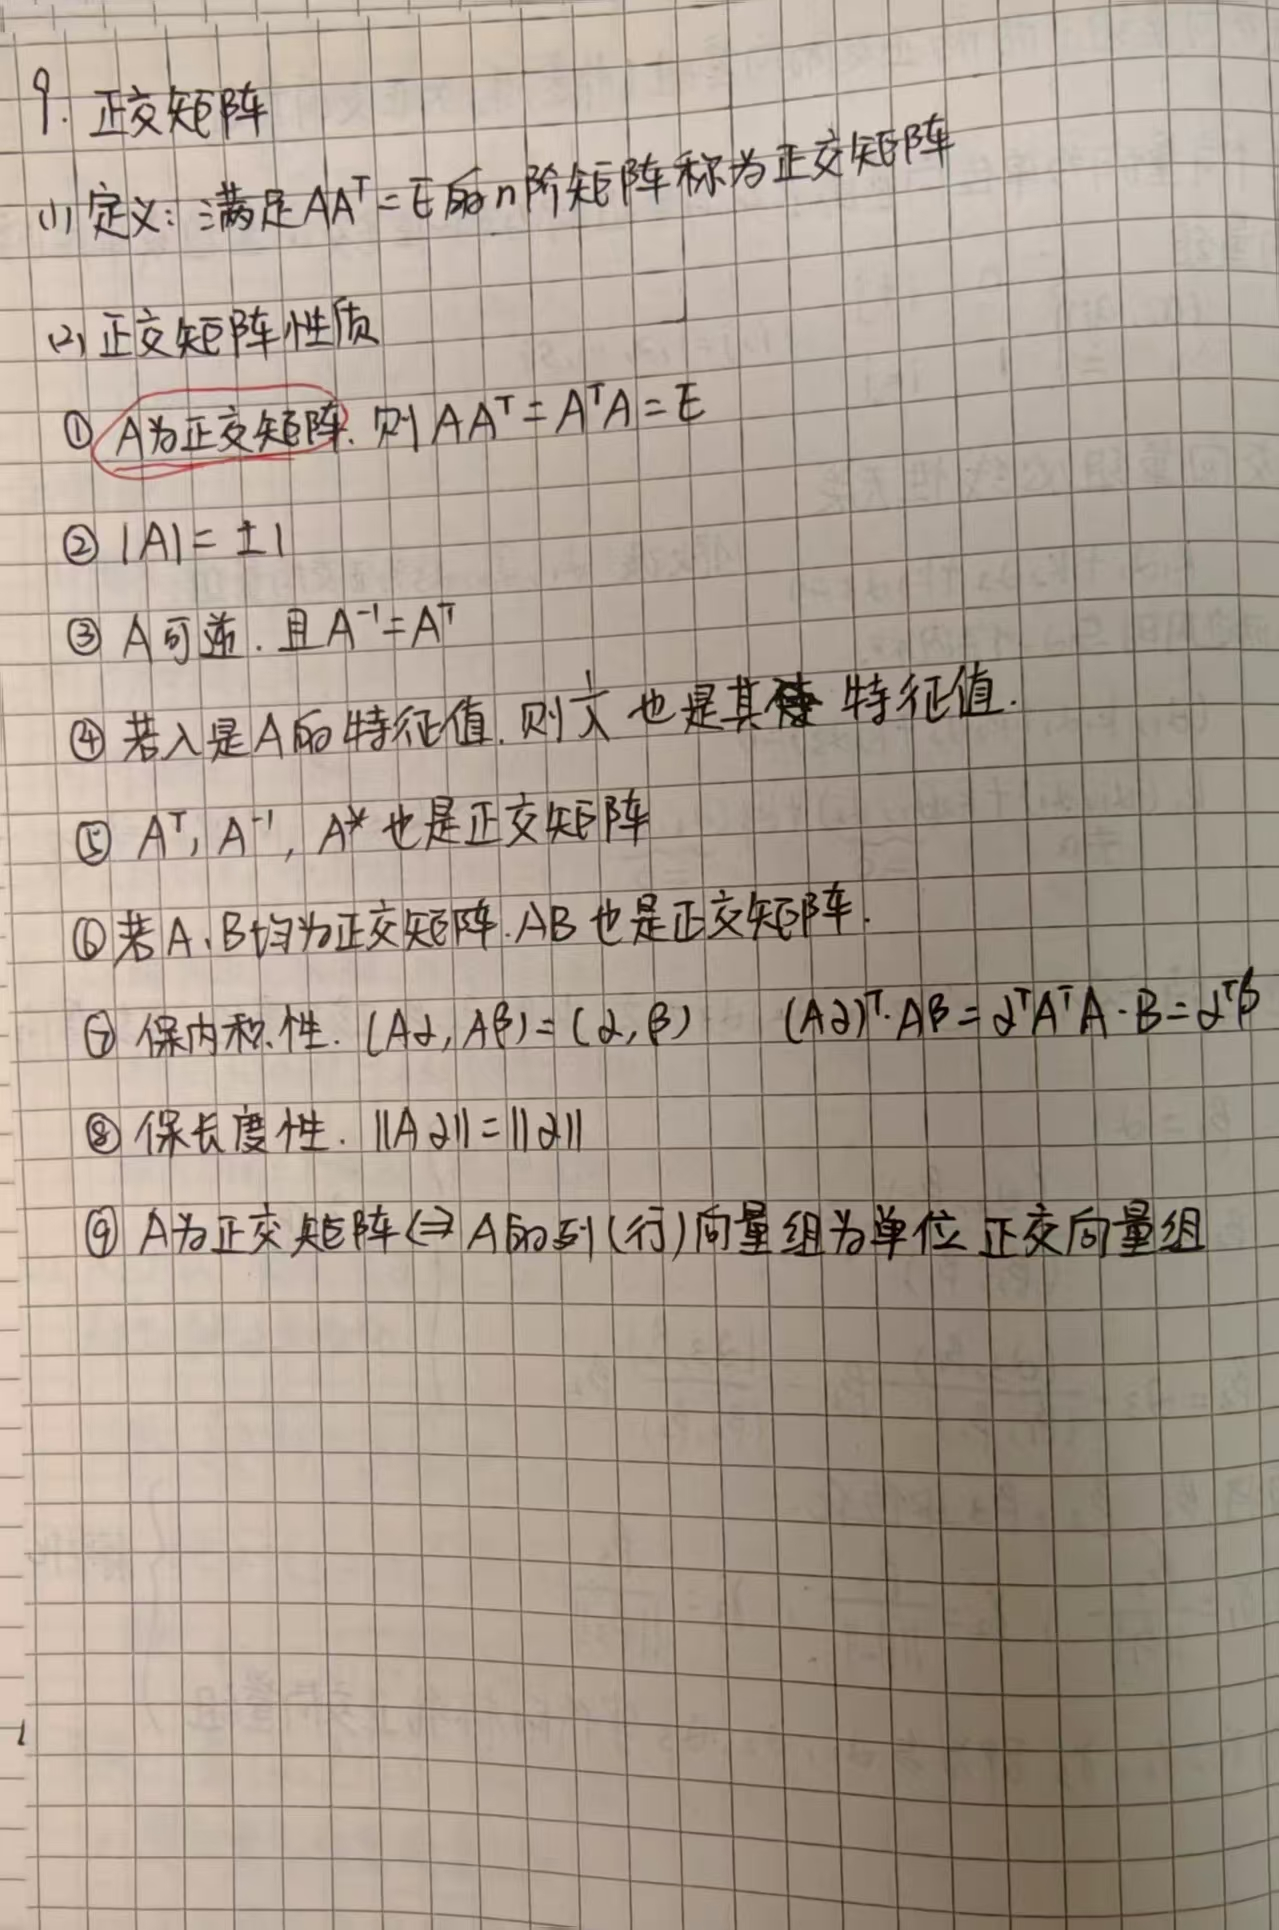 9. 正交矩阵
(1) 定义：满足AAᵀ=E的n阶矩阵称为正交矩阵
(2) 正交矩阵性质
① A为正交矩阵. 则AAᵀ=AᵀA=E
② |A|=±1
③ A可逆. 且A⁻¹=Aᵀ
④ 若λ是A的特征值. 则1/λ也是其特征值.
⑤ Aᵀ, A⁻¹, A*也是正交矩阵
⑥ 若A、B均为正交矩阵. AB也是正交矩阵.
⑦ 保内积性. (Aα, Aβ)=(α, β) (Aα)ᵀ·Aβ=αᵀAᵀA·B=αᵀβ
⑧ 保长度性. ||Aα||=||α||
⑨ A为正交矩阵⇔A的列(行)向量组为单位正交向量组